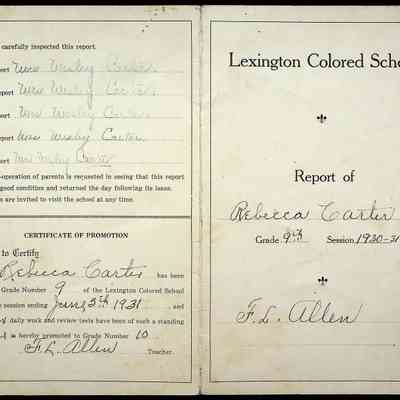 carefully inspected this report.
port Mrs Wesley Carter
eport Mrs Wesley Carter
eport Mrs Wesley Carter
eport Mrs Wesley Carter
port Mrs Wesley Carter
-operation of parents is requested in seeing that this report
good condition and returned the day following its issue.
s are invited to visit the school at any time.
CERTIFICATE OF PROMOTION
to Certify
Rebecca Carter has been
Grade Number 9 of the Lexington Colored School
e session ending June 5th 1931 and
daily work and review tests have been of such a standing
is hereby promoted to Grade Number 10
F. L. Allen Teacher.
Lexington Colored Scho
Report of
Rebecca Carter
Grade 9th Session 1930-31
F. L. Allen